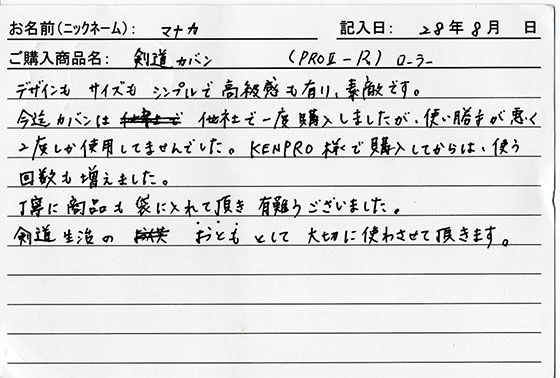 お名前(ニックネーム): マナカ 記入日: 28年8月 日
ご購入商品名: 剣道カバン (PROⅡ-R) ローラー
デザインも サイズも シンプルで 高級感も有り、素敵です。
今迄カバンは 他社で一度購入しましたが、使い勝手が悪く
2度しか使用してませんでした。KENPRO様で購入してからは、使う
回数も増えました。
丁寧に商品も袋に入れて頂き 有難うございました。
剣道生活の おとも として 大切に使わさせて頂きます。